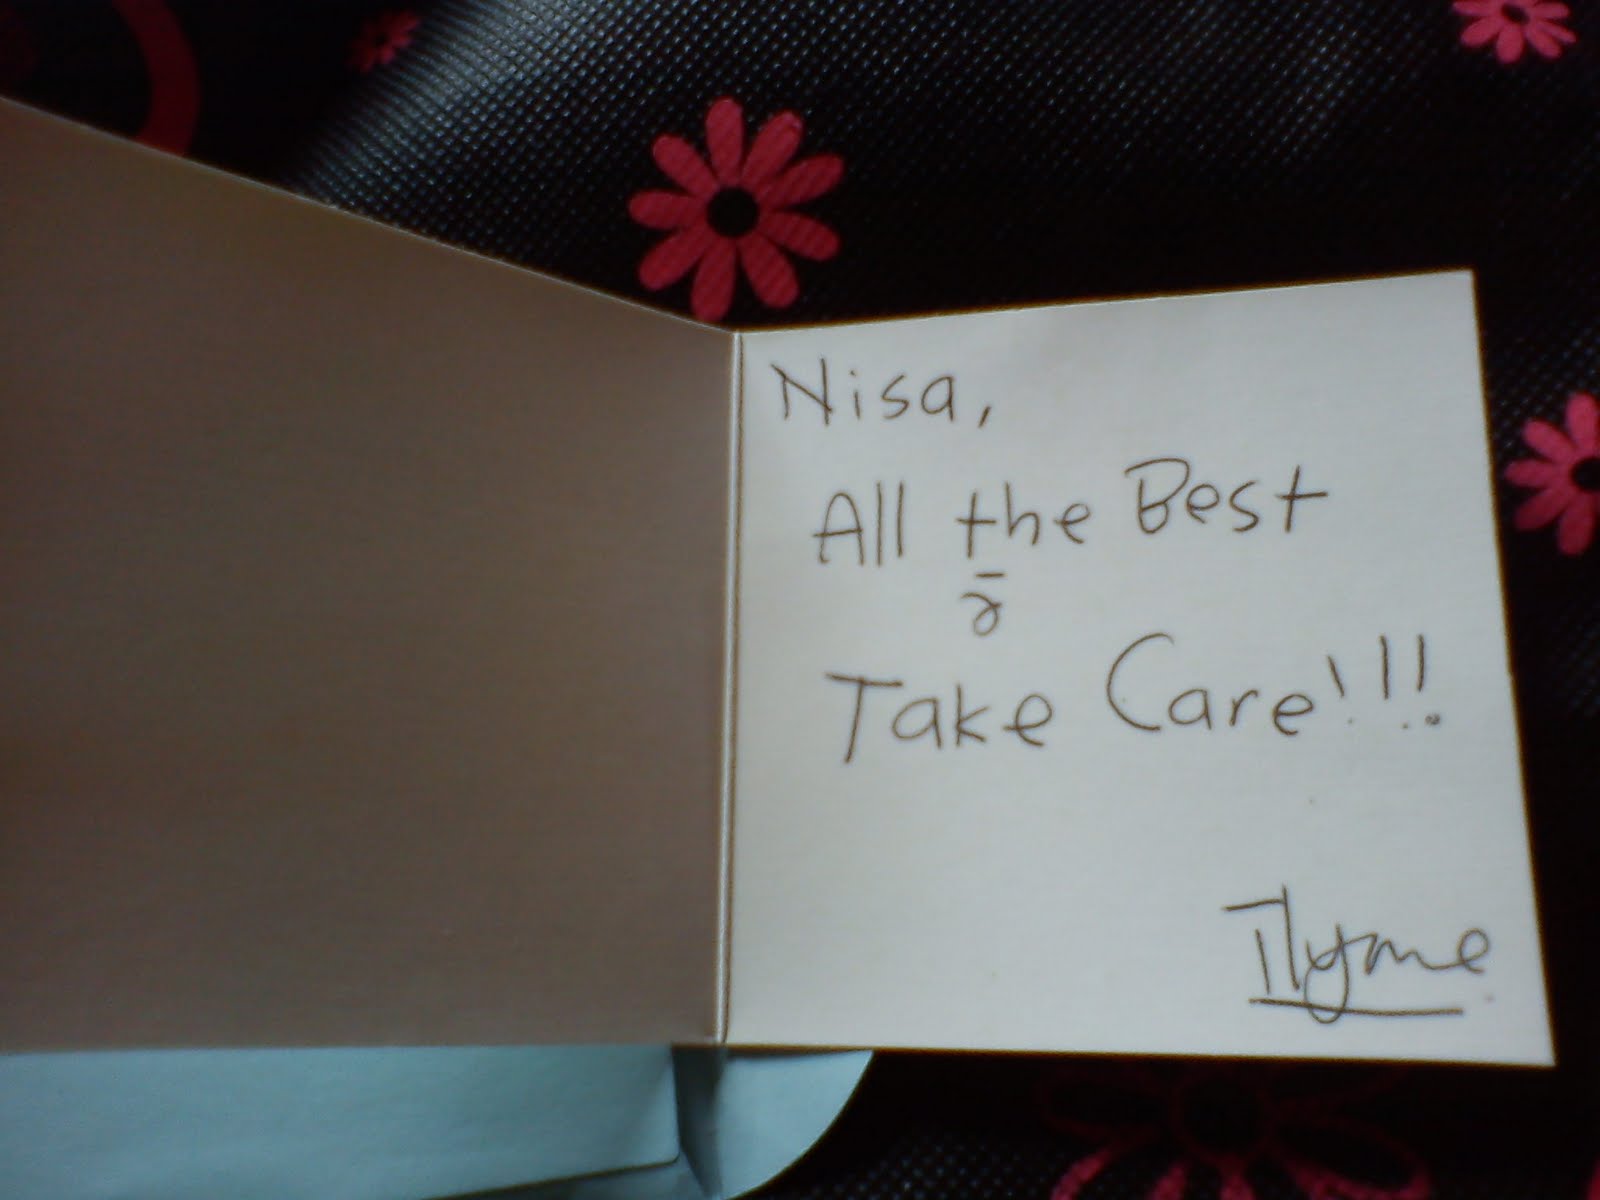 Nisa,
All the Best
Take Care!!!
Ilyme